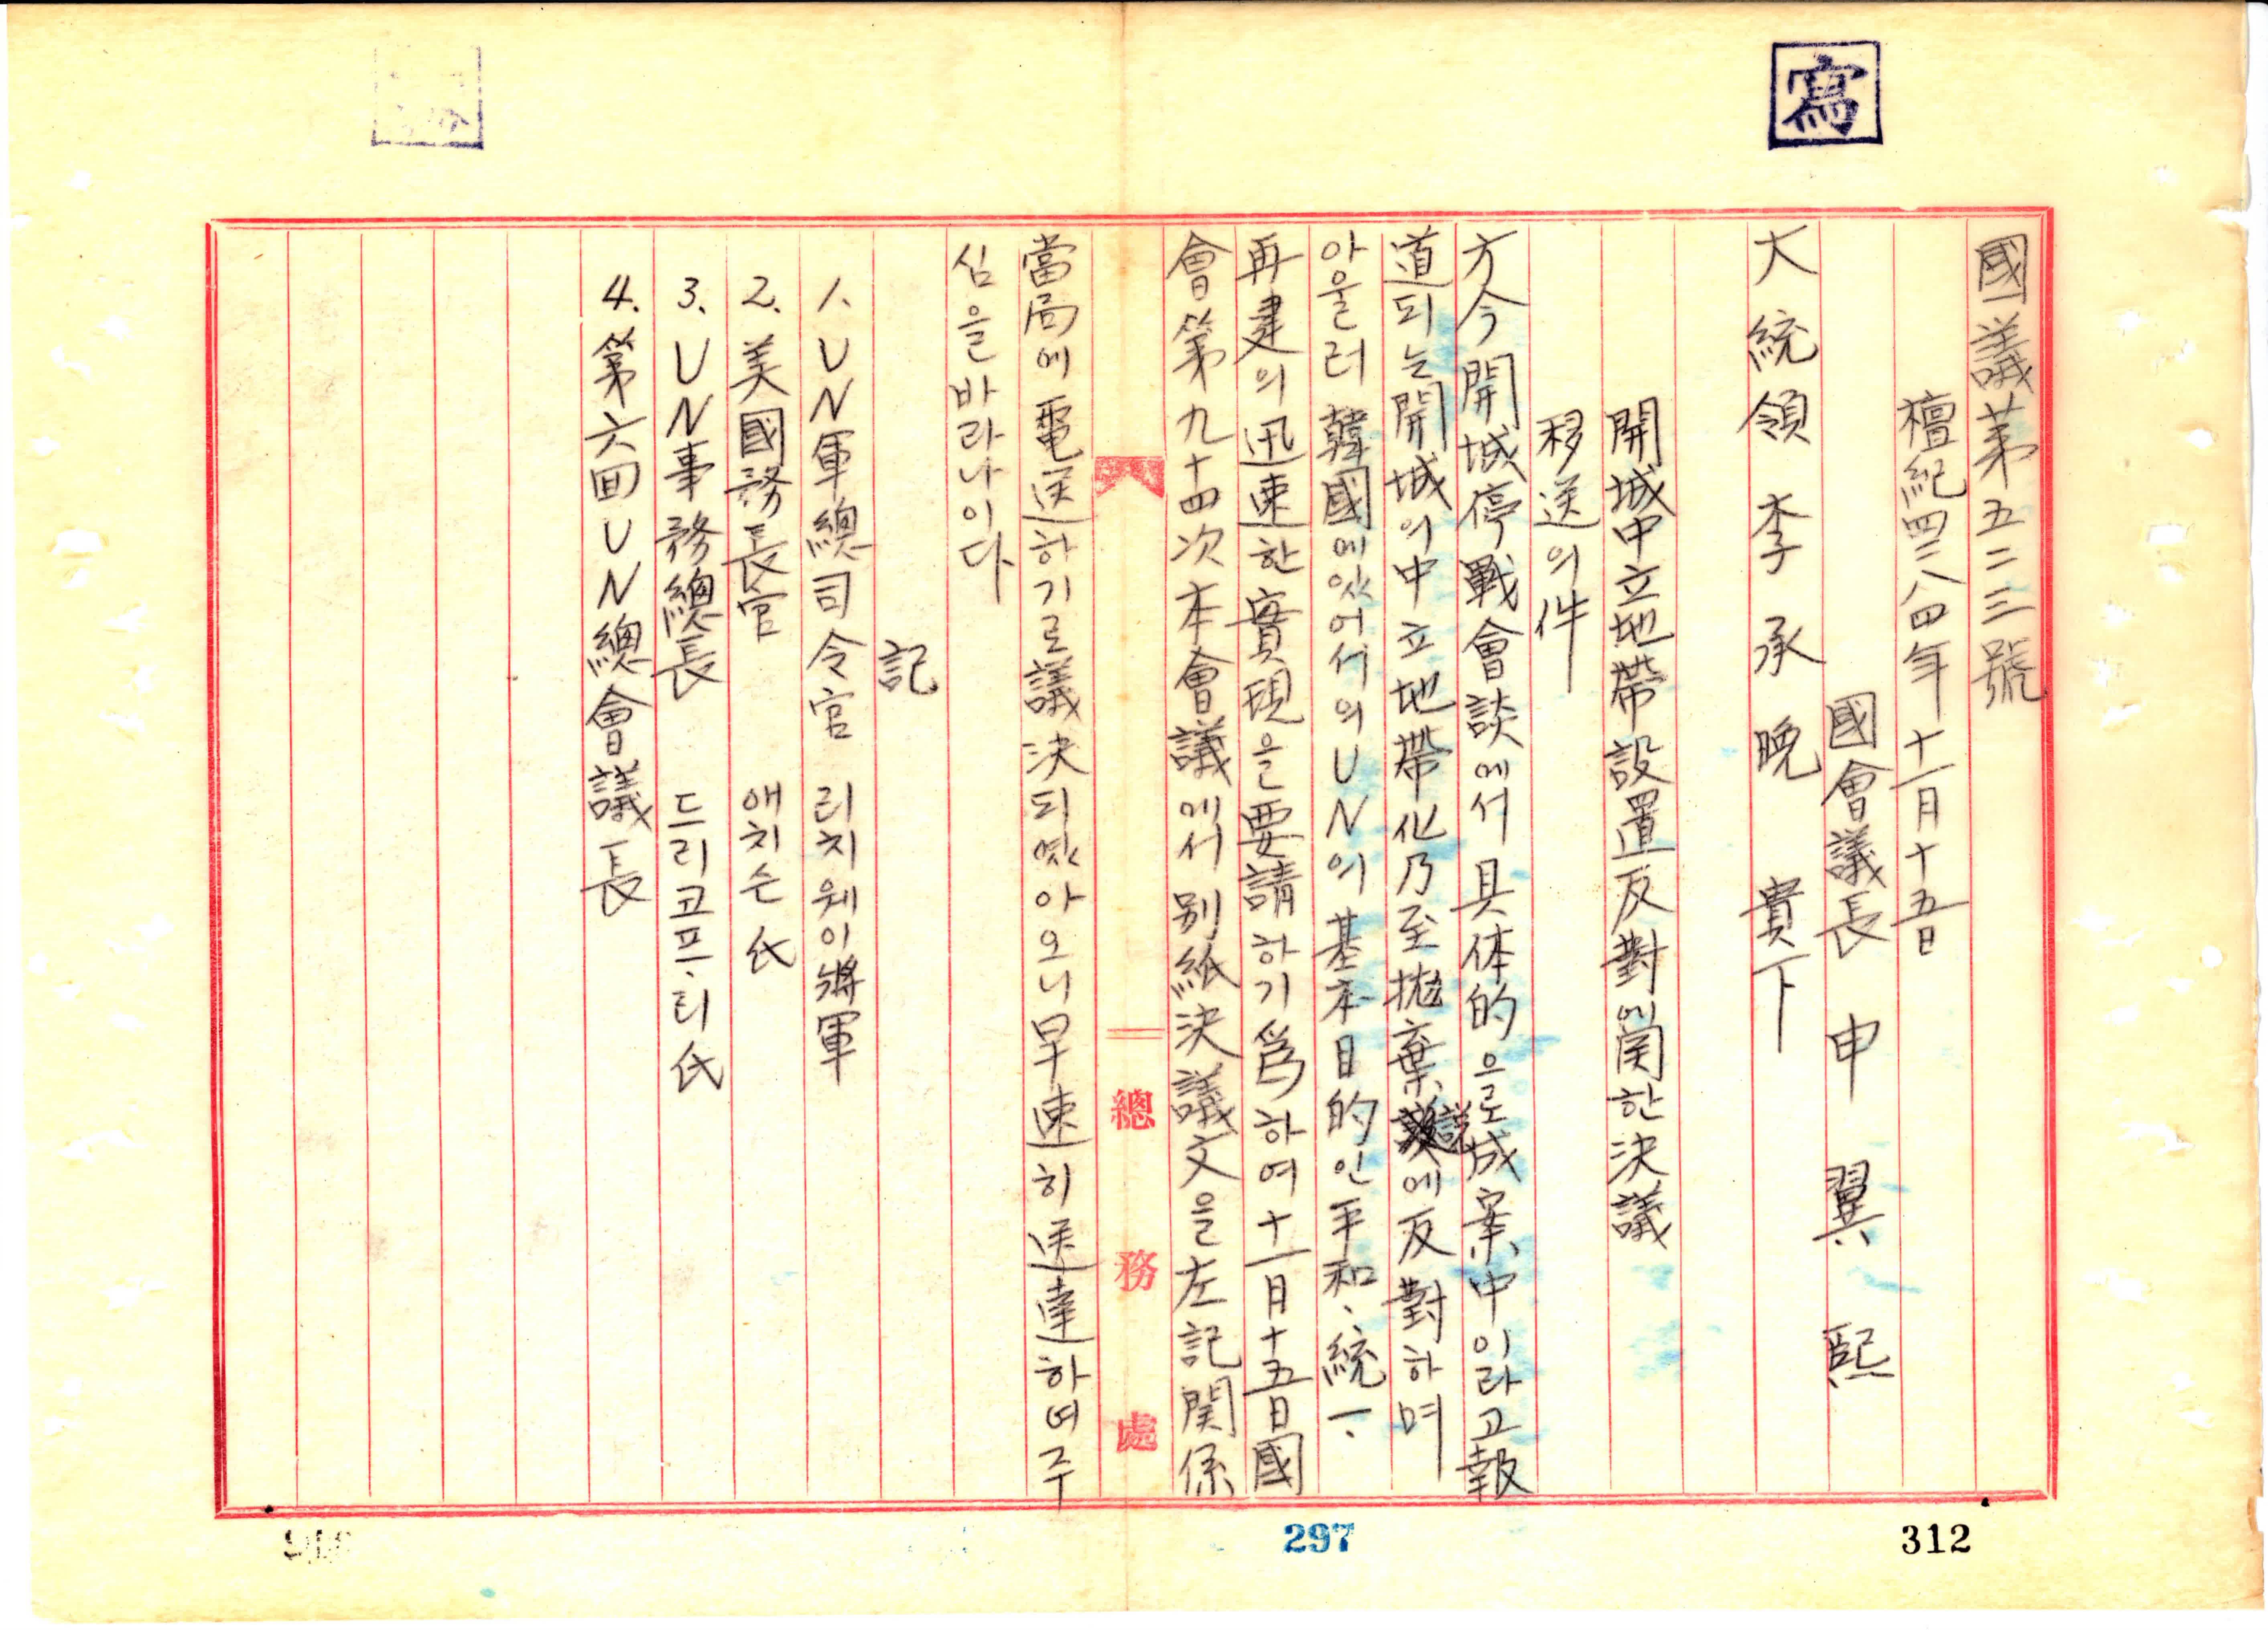 寫
國議第五二三號
檀紀四二八四年十一月十五日
國會議長 申翼熙
大統領 李承晩 貴下
開城中立地帶設置反對에関한決議
移送의件
方今開城停戰會談에서具体的으로成案中이라고報
道되는開城의中立地帶化乃至抛棄說에反對하며
아울러韓國에있어서의UN의基本目的인平和、統一、
再建의迅速한實現을要請하기爲하여十一月十五日國
會第九十四次本會議에서別紙決議文을左記関係
總務處
當局에電送하기로議決되였아오니早速히送達하여주
심을바라나이다
記
1、UN軍總司令官 리치웨이將軍
2、美國務長官 애치슨氏
3、UN事務總長 드리코프、티氏
4、第六回UN總會議長
297
312